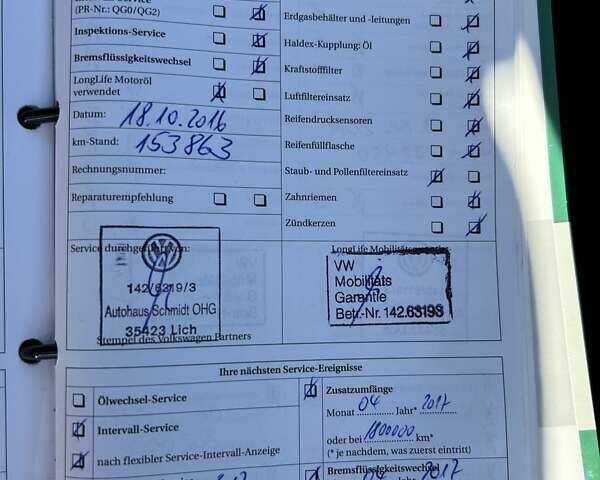 (PR-Nr.: QG0/QG2)
Inspektions-Service
Bremsflüssigkeitswechsel
LongLife Motoröl
verwendet
Datum: 18.10.2016
km-Stand: 153863
Rechnungsnummer:
Reparaturempfehlung
Erdgasbehälter und -leitungen
Haldex-Kupplung: Öl
Kraftstofffilter
Luftfiltereinsatz
Reifendrucksensoren
Reifenfüllflasche
Staub- und Pollenfiltereinsatz
Zahnriemen
Zündkerzen
Service durchgeführt von:
142/6319/3
Autohaus Schmidt OHG
35423 Lich
Stempel des Volkswagen Partners
LongLife Mobilitätsgarantie
VW
Mobilitäts
Garantie
Betr.-Nr. 142.63193
Ihre nächsten Service-Ereignisse
Ölwechsel-Service
Intervall-Service
nach flexibler Service-Intervall-Anzeige
Zusatzumfänge
Monat 04 Jahr* 2017
oder bei 1800000 km*
(* je nachdem, was zuerst eintritt)
Bremsflüssigkeitswechsel
04 2017